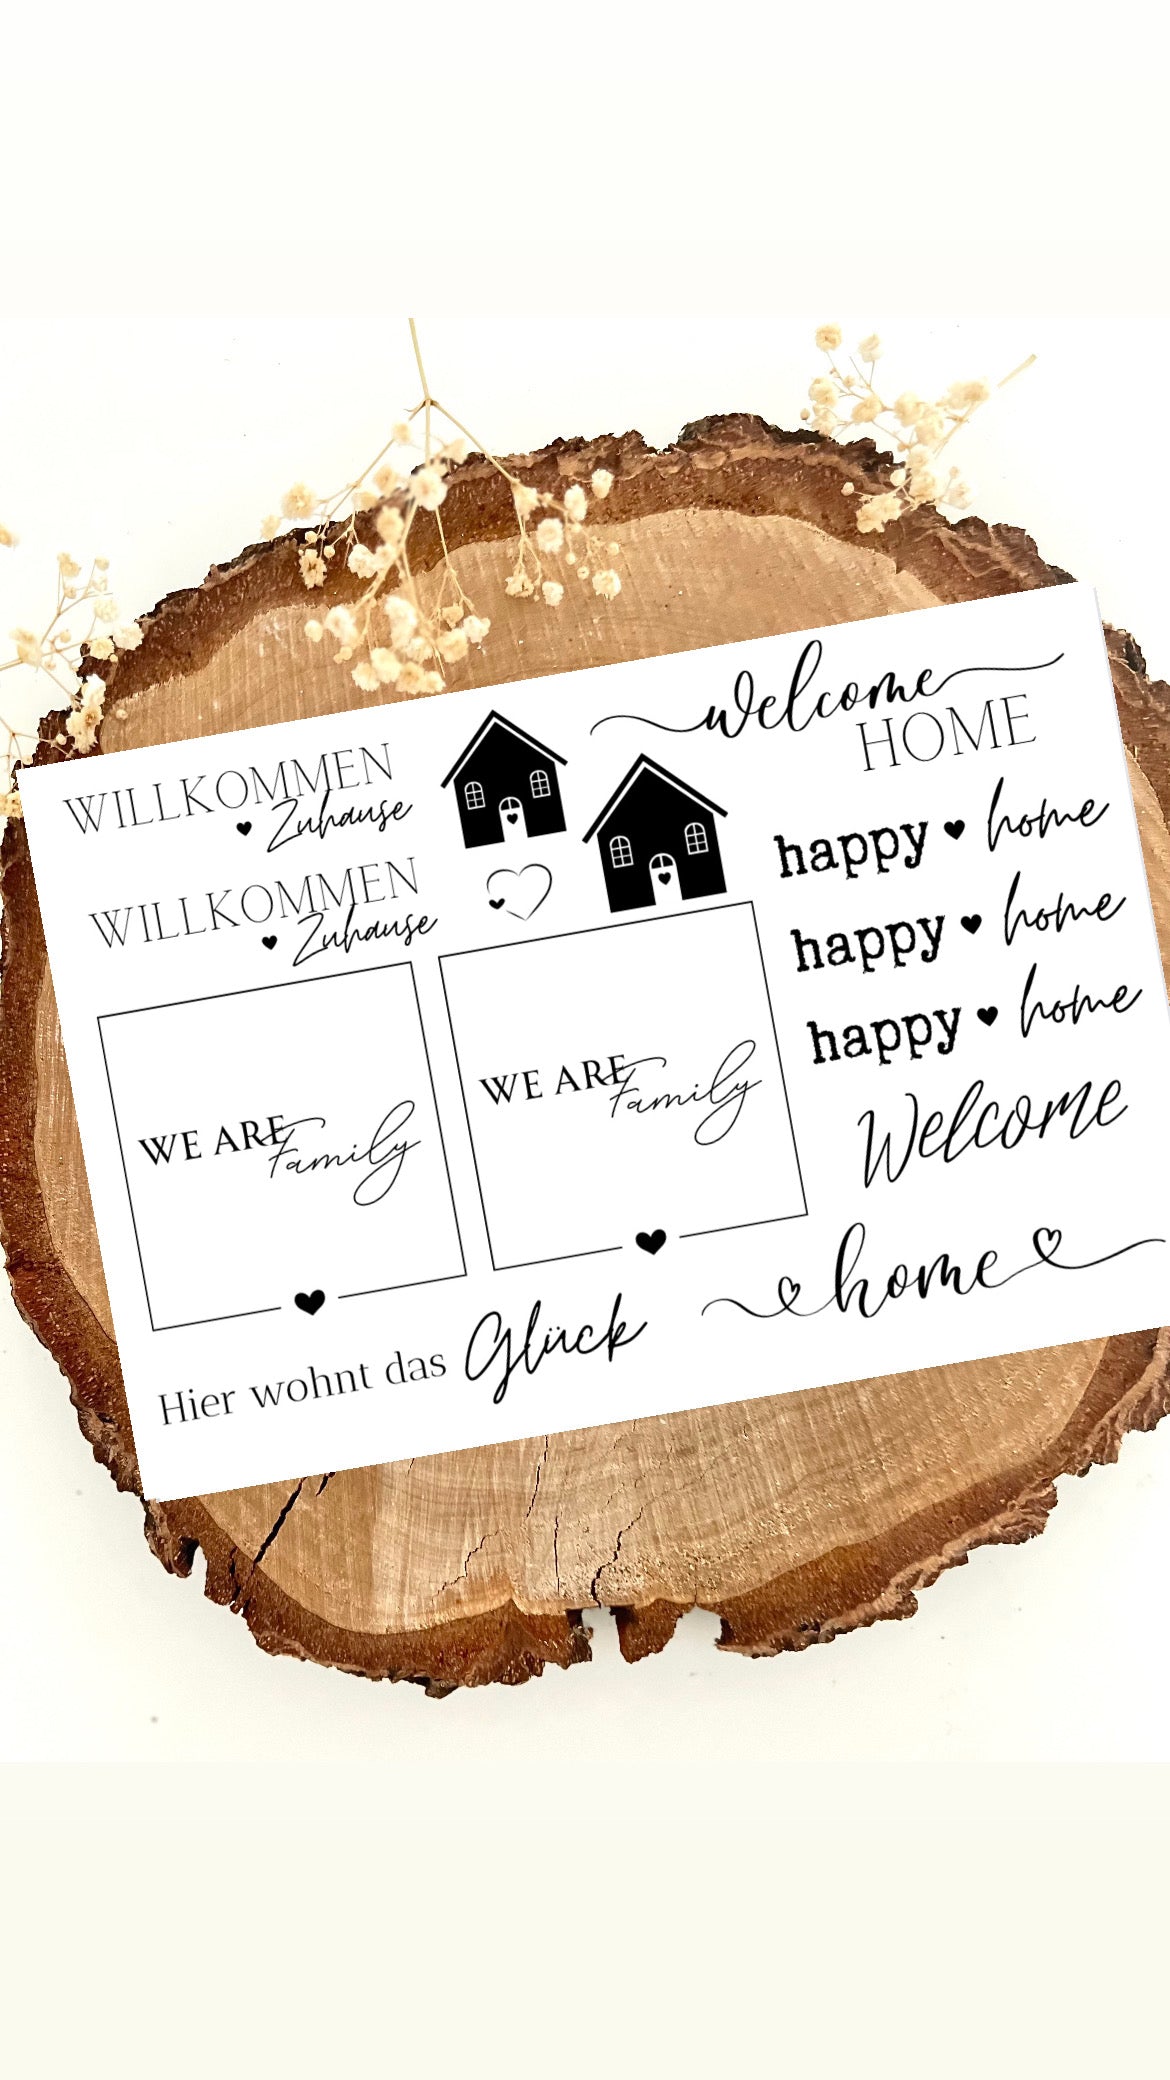 WILLKOMMEN
Zuhause
WILLKOMMEN
Zuhause
WE ARE
Family
WE ARE
Family
Hier wohnt das Glück
welcome
HOME
happy home
happy home
happy home
Welcome
home